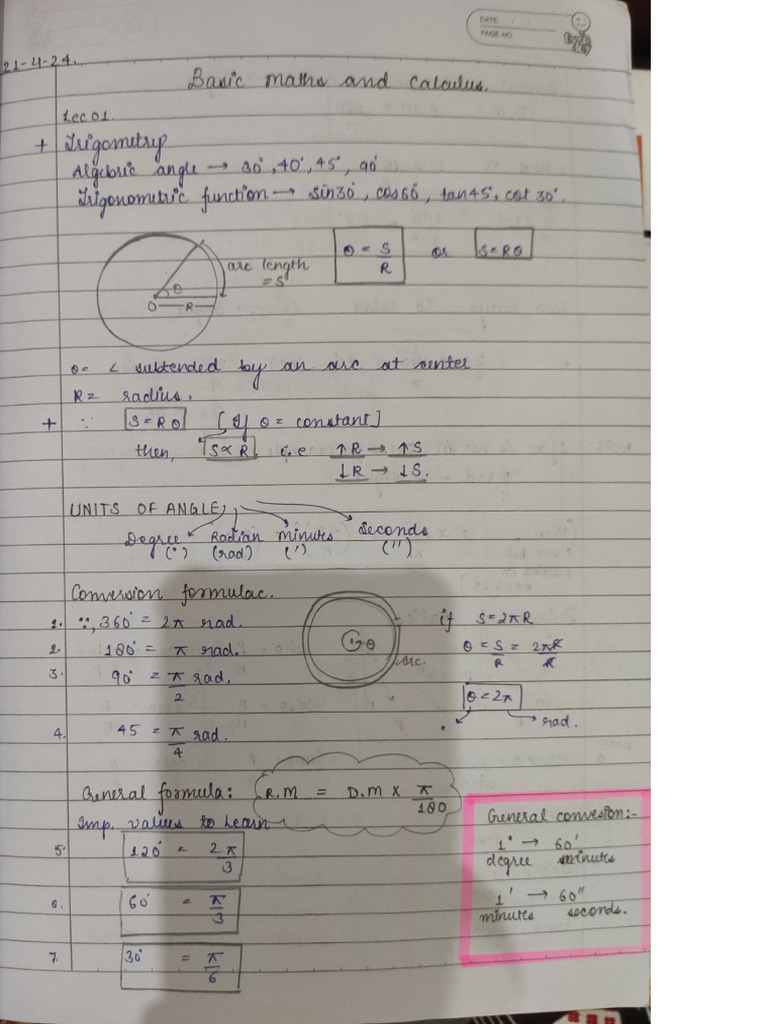 DATE: / /
PAGE NO.
21-4-24.
Basic maths and calculus.
Lec 01.
+ Trigometry
Algebric angle → 30°, 40°, 45°, 90°
Trigonometric function → sin30°, cos60°, tan45°, cot 30°.
θ = S/R or S=Rθ
arc length = S
θ
O R
θ = ∠ subtended by an arc at center
R = radius.
+ ∵ S=Rθ [If θ = constant]
then, S∝R i.e ↑R → ↑S
↓R → ↓S.
UNITS OF ANGLE;
Degree Radian minutes Seconds
(°) (rad) (') ('')
Conversion formulae.
1. ∵, 360° = 2π rad.
2. 180° = π rad.
3. 90° = π/2 rad.
4. 45 = π/4 rad.
θ
arc.
if S=2πR
θ = S/R = 2πR/R
θ = 2π
rad.
General formula: R.M = D.M × π/180
Imp. values to Learn
5. 120° = 2π/3
6. 60° = π/3
7. 30° = π/6
General convesion:-
1° → 60'
degree minutes
1' → 60''
minutes seconds.